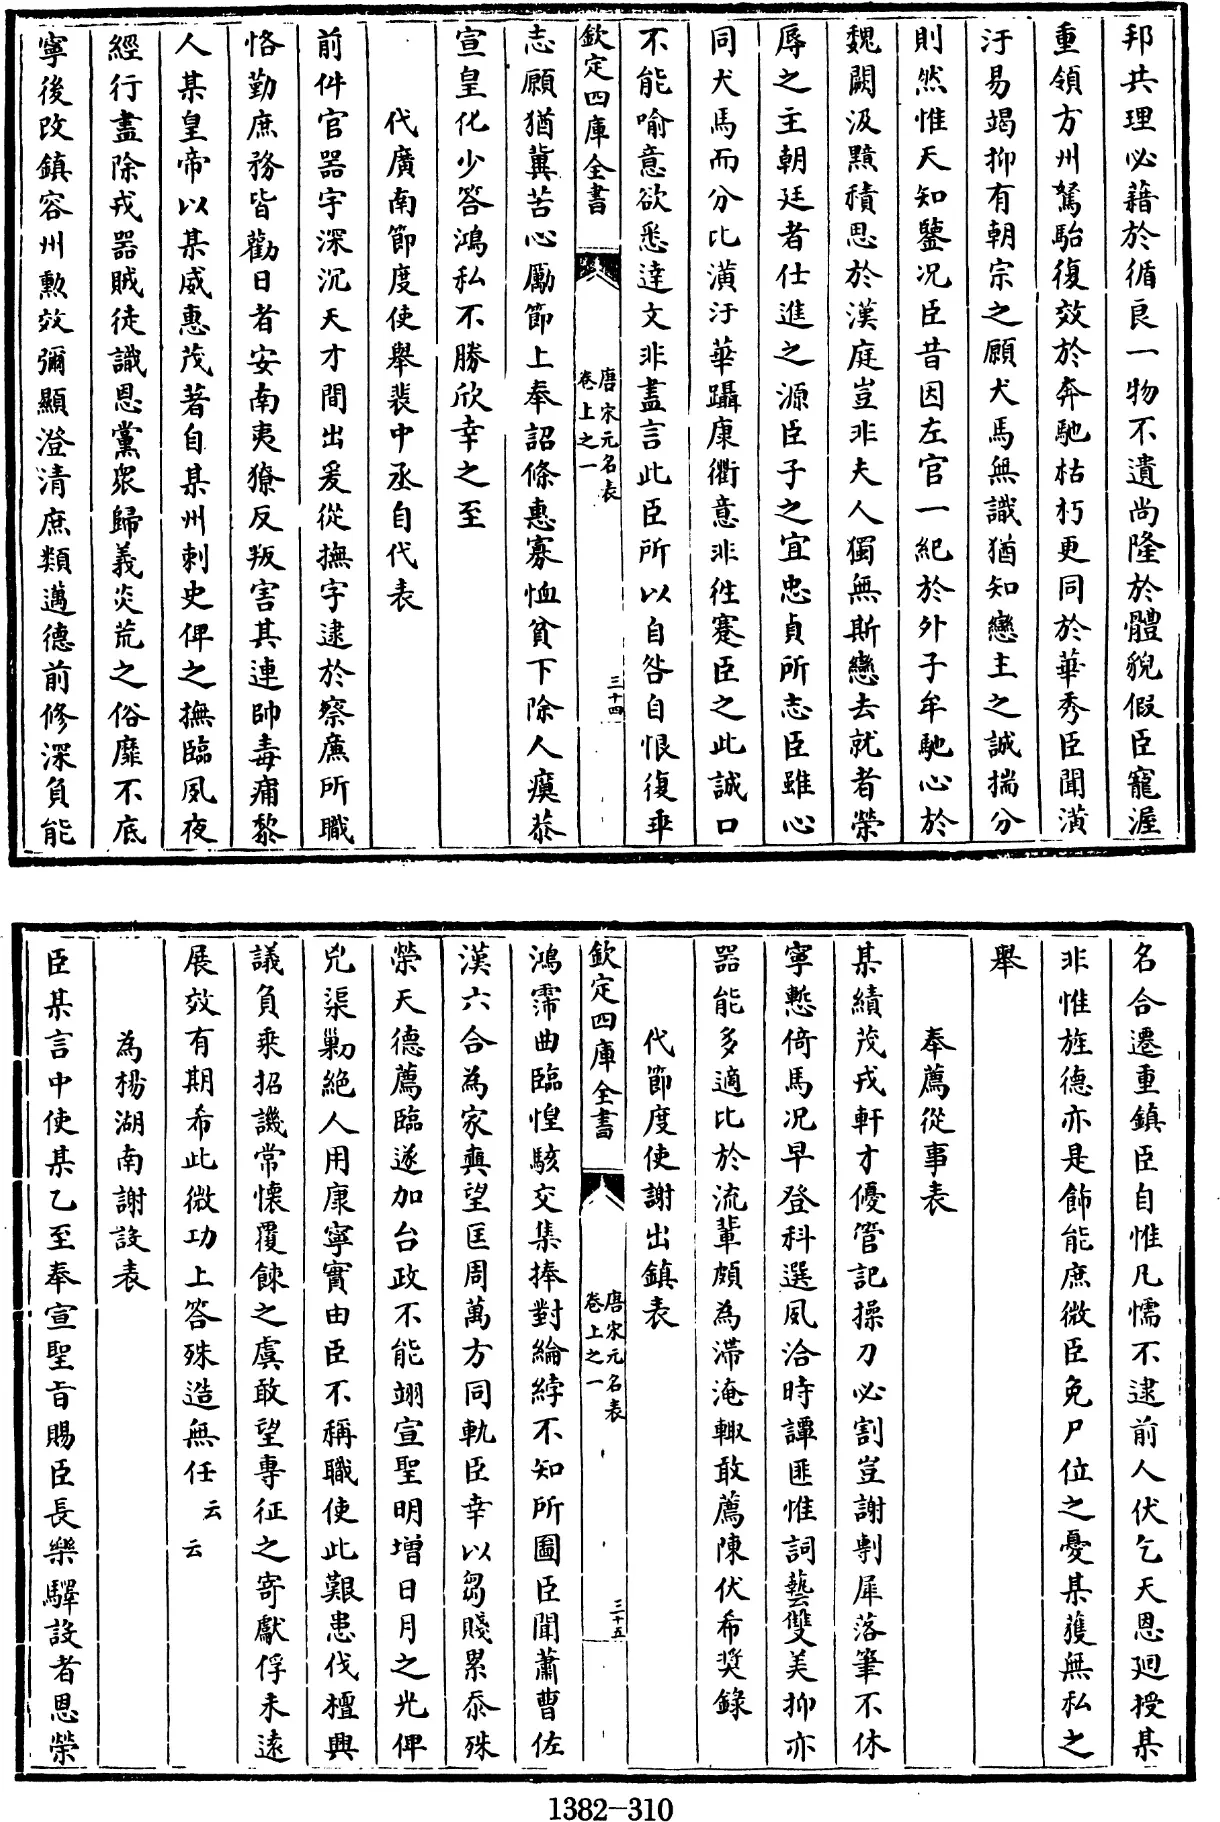 邦共理必藉於循良一物不遺尚隆於體貌假臣寵渥
重領方州駑駘復效於奔馳枯朽更同於華秀臣聞潢
汙易竭抑有朝宗之願犬馬無識猶知戀主之誠揣分
則然惟天知鑒况臣昔因左官一紀於外子牟馳心於
魏闕汲黯積思於漢庭豈非夫人獨無斯戀去就者榮
辱之主朝廷者仕進之源臣子之宜忠貞所志臣雖心
同犬馬而分比潢汙華躡康衢意非徃蹇臣之此誠口
不能喻意欲悉達文非盡言此臣所以自咎自恨復乖
欽定四庫全書
唐宋元名表
卷上之一
三十四
志願猶冀苦心勵節上奉詔條惠寡恤貧下除人瘼恭
宣皇化少答鴻私不勝欣幸之至
代廣南節度使舉裴中丞自代表
前件官器宇深沉天才間出爰從撫字逮於察廉所職
恪勤庶務皆勸日者安南夷獠反叛害其連帥毒痡黎
人某皇帝以某威惠茂著自某州刺史俾之撫臨夙夜
經行盡除戎器賊徒識恩黨衆歸義炎荒之俗靡不底
寧後改鎮容州勲效彌顯澄清庶類邁德前修深負能
名合遷重鎮臣自惟凡懦不逮前人伏乞天恩迴授某
非惟旌德亦是飾能庶微臣免尸位之憂某獲無私之
舉
奉薦從事表
某績茂戎軒才優管記操刀必割豈謝剸犀落筆不休
寧慙倚馬况早登科選風洽時譚匪惟詞藝雙美抑亦
器能多適比於流輩頗為滯淹輙敢薦陳伏希奬錄
代節度使謝出鎮表
欽定四庫全書
唐宋元名表
卷上之一
三十五
鴻霈曲臨惶駭交集捧對綸綍不知所圖臣聞蕭曹佐
漢六合為家奭望匡周萬方同軌臣幸以芻賤累忝殊
榮天德薦臨遂加台政不能翊宣聖明增日月之光俾
兇渠勦絶人用康寧實由臣不稱職使此艱患伐檀興
議負乗招譏常懷覆餗之虞敢望專征之寄獻俘未遠
展效有期希此微功上答殊造無任云云
為楊湖南謝設表
臣某言中使某乙至奉宣聖旨賜臣長樂驛設者恩榮
1382-310